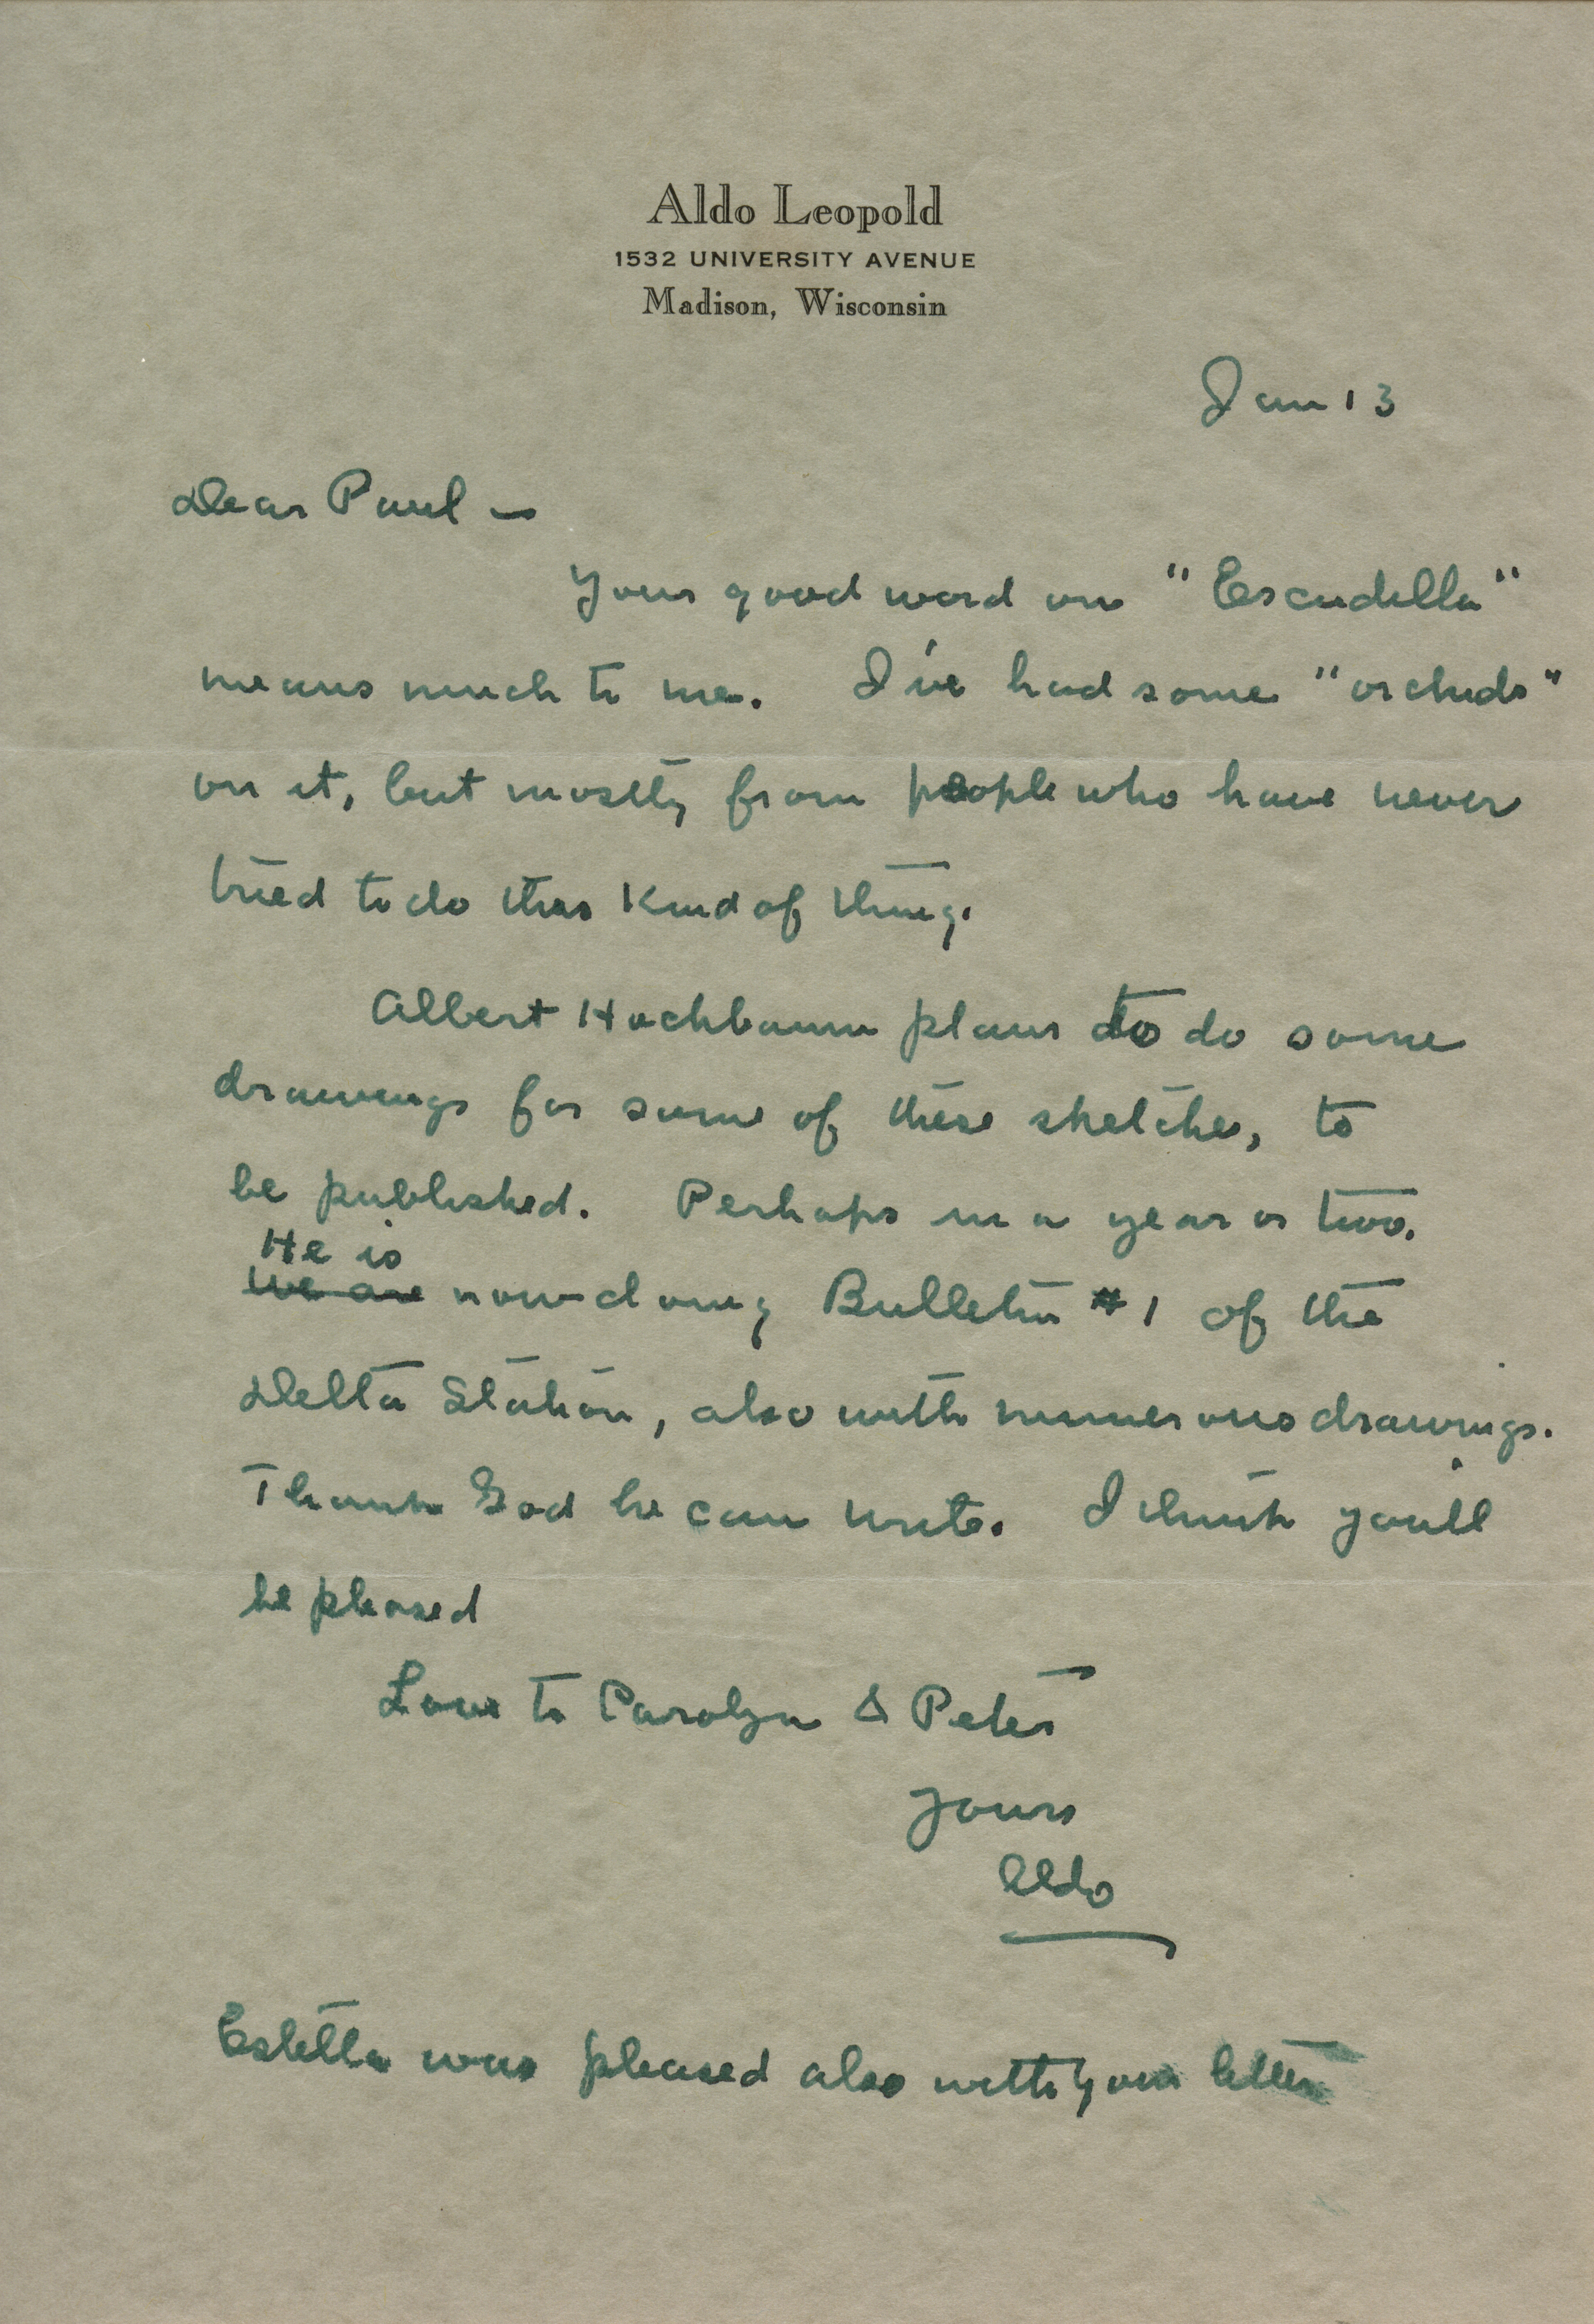 Aldo Leopold
1532 UNIVERSITY AVENUE
Madison, Wisconsin
Jan 13
Dear Paul —
Your good word on "Escudilla"
means much to me. I've had some "orchids"
on it, but mostly from people who have never
tried to do this kind of thing.
Albert Hochbaum plans to do some
drawings for some of these sketches, to
be published. Perhaps in a year or two.
He is
we are now doing Bulletin #1 of the
Delta Station, also with numerous drawings.
Thank God he can write. I think you'll
be pleased
Love to Carolyn & Peter
Yours
Aldo
Estella was pleased also with your letter